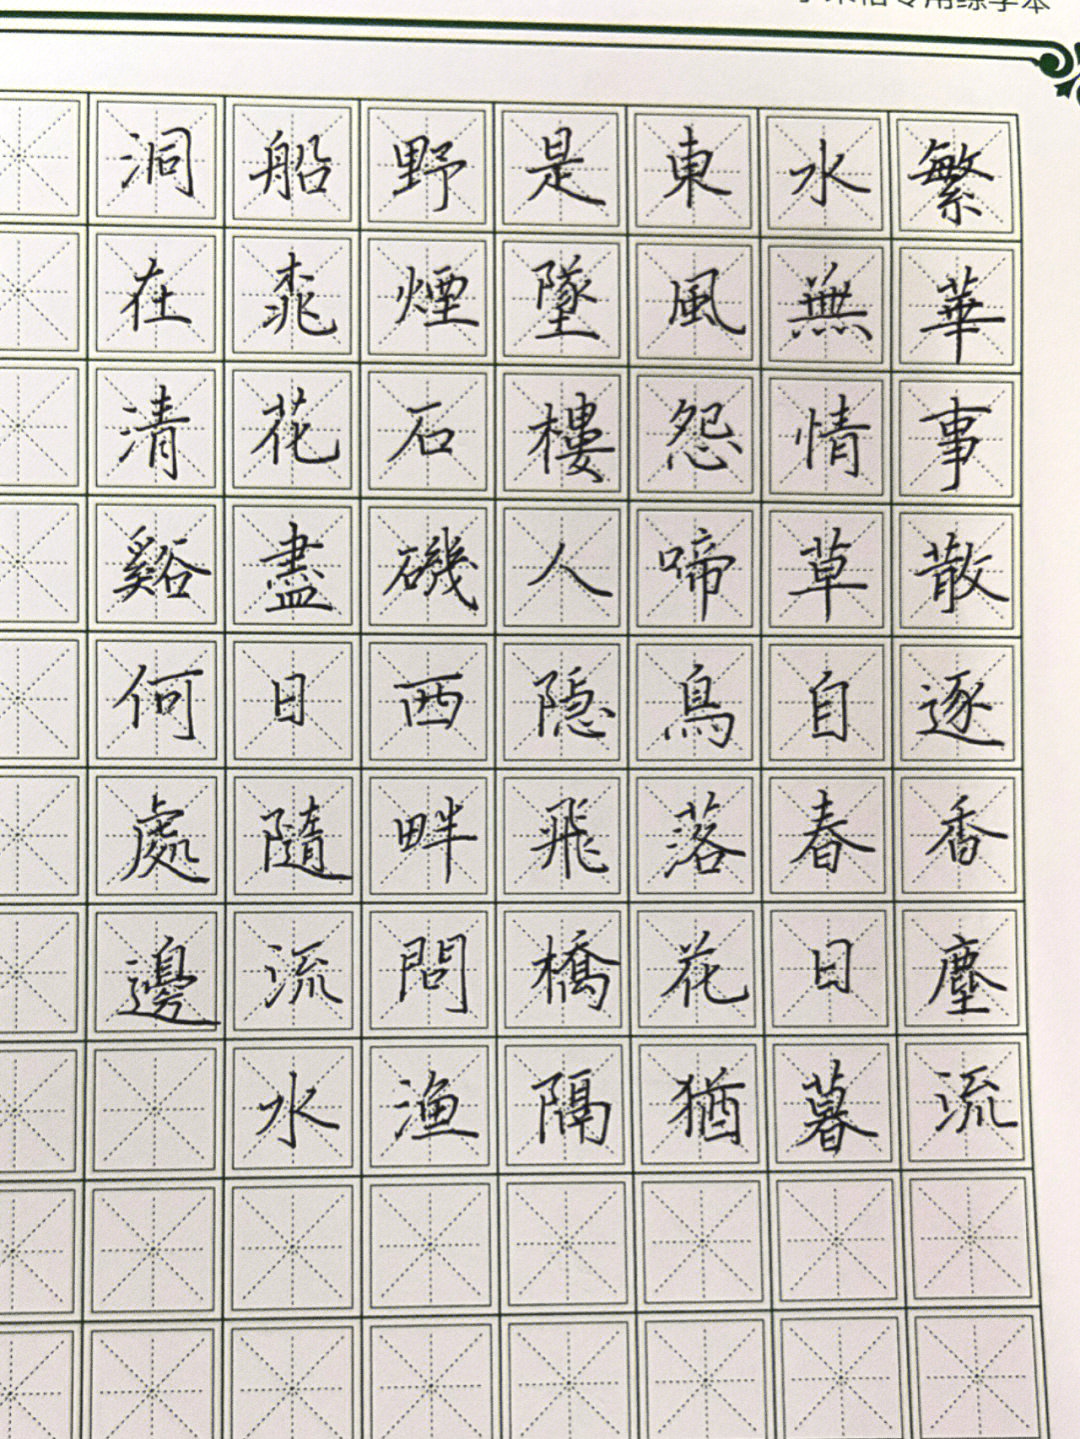 专用练字本
繁華事散逐香塵流
水無情草自春日暮
東風怨啼鳥落花猶
是墜樓人隱飛橋隔
野煙石磯西畔問漁
船桃花盡日隨流水
洞在清谿何處邊